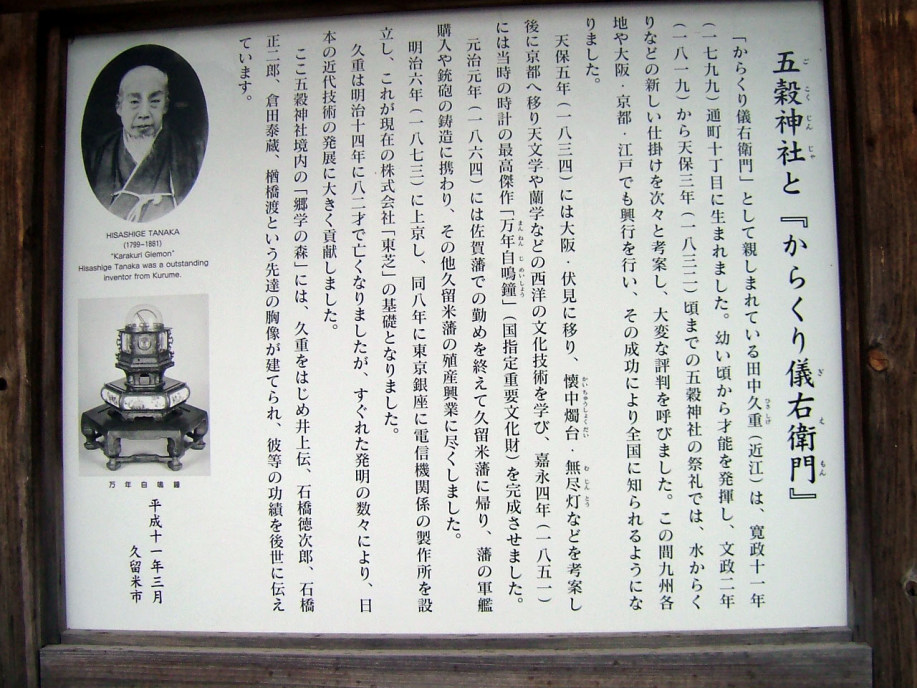 五穀神社と『からくり儀右衛門』
「からくり儀右衛門」として親しまれている田中久重（近江）は、寛政十一年
（一七九九）通町十丁目に生まれました。幼い頃から才能を発揮し、文政二年
（一八一九）から天保三年（一八三二）頃までの五穀神社の祭礼では、水からく
りなどの新しい仕掛けを次々と考案し、大変な評判を呼びました。この間九州各
地や大阪・京都・江戸でも興行を行い、その成功により全国に知られるようにな
りました。
天保五年（一八三四）には大阪・伏見に移り、懐中燭台・無尽灯などを考案し
後に京都へ移り天文学や蘭学などの西洋の文化技術を学び、嘉永四年（一八五一）
には当時の時計の最高傑作「万年自鳴鐘」（国指定重要文化財）を完成させました。
元治元年（一八六四）には佐賀藩での勤めを終えて久留米藩に帰り、藩の軍艦
購入や銃砲の鋳造に携わり、その他久留米藩の殖産興業に尽くしました。
明治六年（一八七三）に上京し、同八年に東京銀座に電信機関係の製作所を設
立し、これが現在の株式会社「東芝」の基礎となりました。
久重は明治十四年に八二才で亡くなりましたが、すぐれた発明の数々により、日
本の近代技術の発展に大きく貢献しました。
ここ五穀神社境内の「郷学の森」には、久重をはじめ井上伝、石橋徳次郎、石橋
正二郎、倉田泰蔵、楢橋渡という先達の胸像が建てられ、彼等の功績を後世に伝え
ています。
HISASHIGE TANAKA
(1799~1881)
"Karakuri Giemon"
Hisashige Tanaka was a outstanding
inventor from Kurume.
万年自鳴鐘
平成十一年三月
久留米市